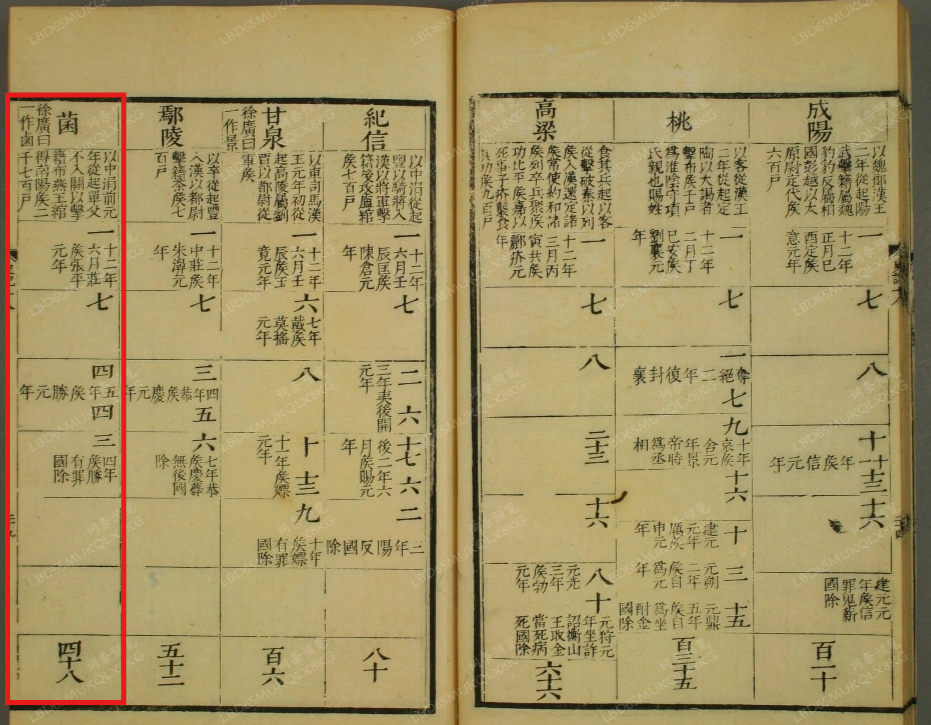 成陽
以魏郎漢王
二年從起陽
武擊籍屬魏
豹豹反屬相
國彭越以太
原尉定代侯
六百戶
一
十二年
正月乙
酉定侯
意元年
七
八
十
十一年侯信元年
十三
十六
建元元
年侯信
罪鬼薪
國除
百一十
桃
以客從漢王
二年從起定
陶以大謁者
擊布侯千戶
爲淮陰守項
氏親也賜姓
一
十二年
二月丁
巳安侯
劉襄元
年
七
一
奪絕
二年復封襄
七
九
十年
哀侯
舍元
年景
帝時
爲丞
相
十六
十
建元
元年
厲侯
申元
年
三
元朔
二年
侯自
爲元
年
十五
元鼎
五年
侯自
爲坐
酎金
國除
百三十五
高梁
食其兵起以客
從擊破秦以列
侯入漢還定諸
侯常使約和諸
侯列卒兵聚侯
功比平侯嘉以
死事子疥襲食
其功侯九百戶
一
十二年
三月丙
寅共侯
酈疥元
年
七
八
二十三
十六
八
元光
三年
侯勃
元年
十
元狩元
年坐詐
詔衡山
王取金
當死病
死國除
六十六
紀信
以中涓從起
豐以騎將入
漢以將軍擊
籍後攻盧綰
侯七百戶
一
十二年
六月壬
辰匡侯
陳倉元
年
七
二
三年夷侯開
元年
六
十七
後二年六
月侯賜元
年
六
二
三年陽反國除
八十
甘泉
徐廣曰
一作景
以車司馬漢
王元年初從
起高陵屬劉
賈以都尉從
軍侯
一
十二年
六月壬
辰侯王
竟元年
六
七年
戴侯
莫搖
元年
八
十
十一年侯嫖
元年
十三
九
十年
侯嫖
有罪
國除
百六
鄢陵
以卒從起豐
入漢以都尉
擊籍荼侯七
百戶
一
十二年
中莊侯
朱濞元
年
七
三
四年恭侯慶元年
五
六
七年恭
侯慶薨
無後國
除
五十二
菌
徐廣曰
一作鹵
以中涓前元
年從起單父
不入關以擊
籍布燕王綰
得南陽侯二
千七百戶
一
十二年
六月莊
侯張平
元年
七
四
五年侯勝元年
四
三
四年
侯勝
有罪
國除
四十八